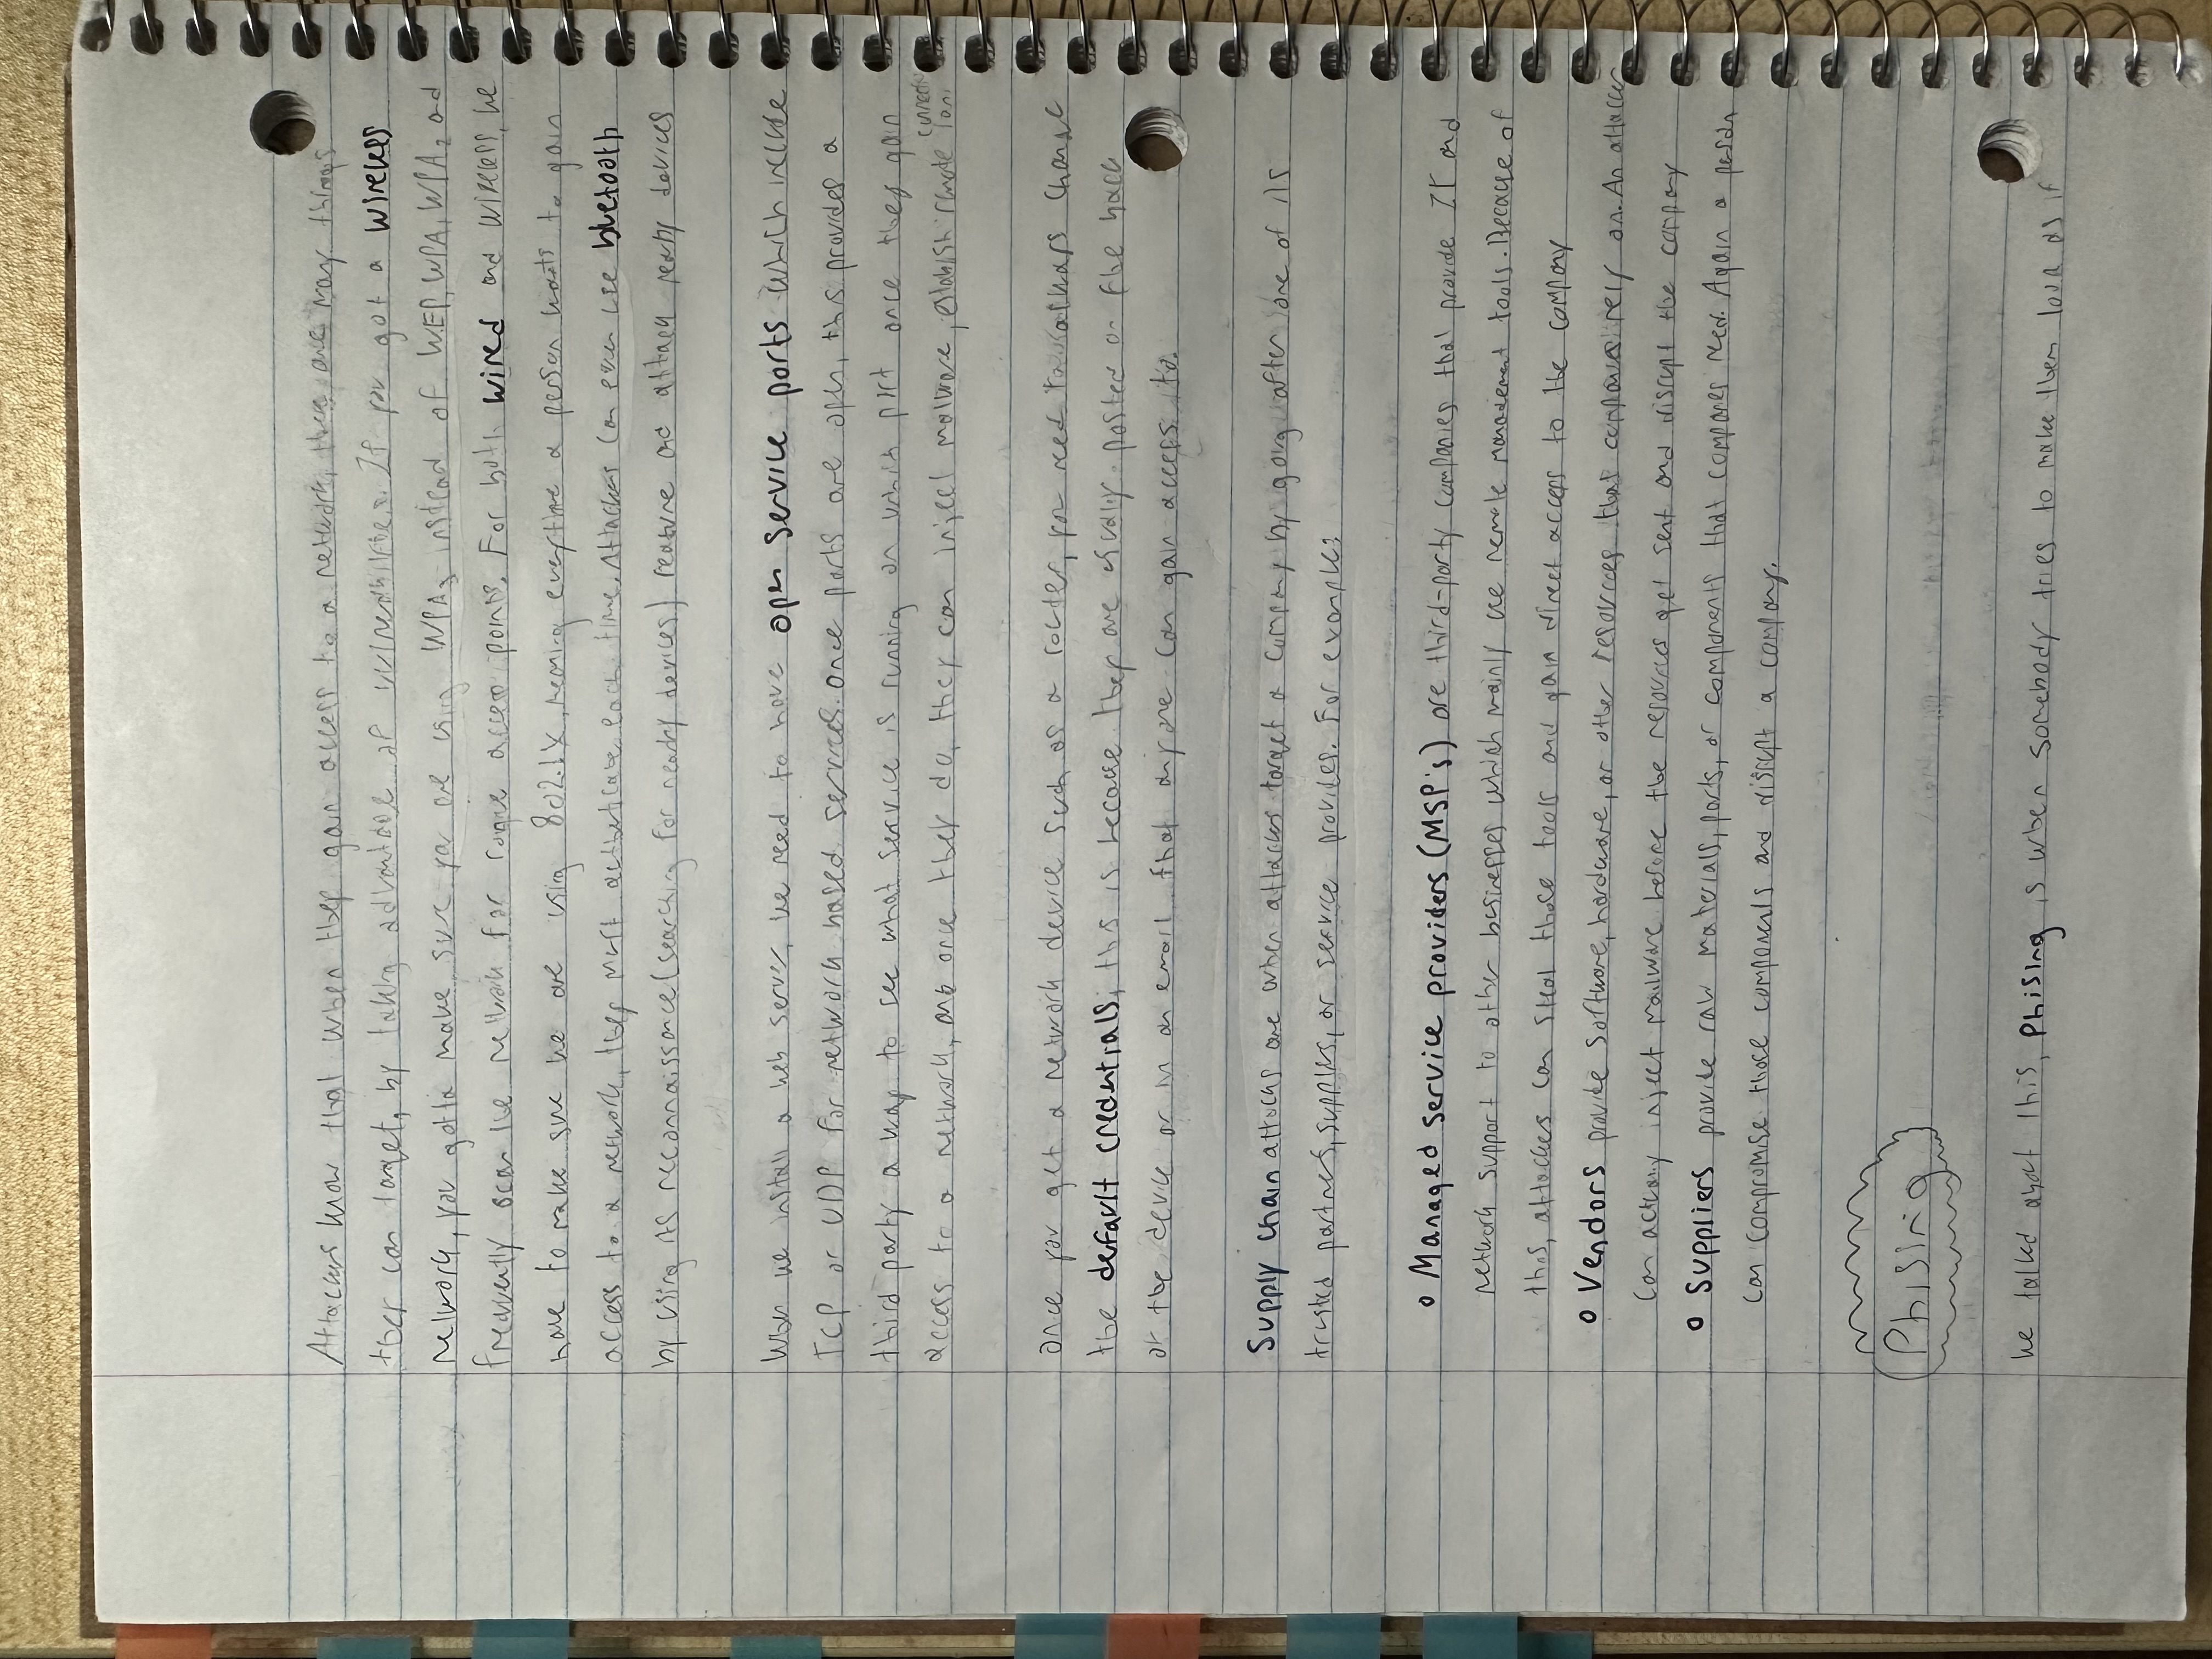 Attackers know that when they gain access to a network, there are many things
they can target, by taking advantage of vulnerabilities. If you got a wireless
network, you gotta make sure you are using WPA3 instead of WEP, WPA, WPA2 and
frequently scan the network for rogue access points. For both wired and wireless, we
have to make sure we are using 802.1X, meaning everytime a person wants to gain
access to a network, they must authenticate each time. Attackers can even use bluetooth
by using its reconnaissance (searching for nearby devices) feature and attack nearby devices
When we install a web server, we need to have open service ports which include
TCP or UDP for network based services. once ports are open, this provides a
third party a way to see what service is running on which port once they gain
access to a network, and once they do, they can inject malware, establish remote connections
Once you get a network device such as a router, you need to always change
the default credentials, this is because they are usually posted on the back
of the device or in an email that anyone can gain access to.
Supply chain attacks are when attackers target a company by going after one of its
trusted partners, suppliers, or service provides. For example:
o Managed service providers (MSP's) are third-party companies that provide IT and
network support to other businesses which mainly use remote management tools. Because of
this, attackers can steal those tools and gain direct access to the company
o Vendors provide software, hardware, or other resources that companies rely on. An attacker
can actually inject mailware before the resources get sent and disrupt the company
o Suppliers provide raw materials, parts, or components that companies need. Again a person
can compromise those components and disrupt a company.
Phising
We talked about this, Phising is when somebody tries to make them look as if